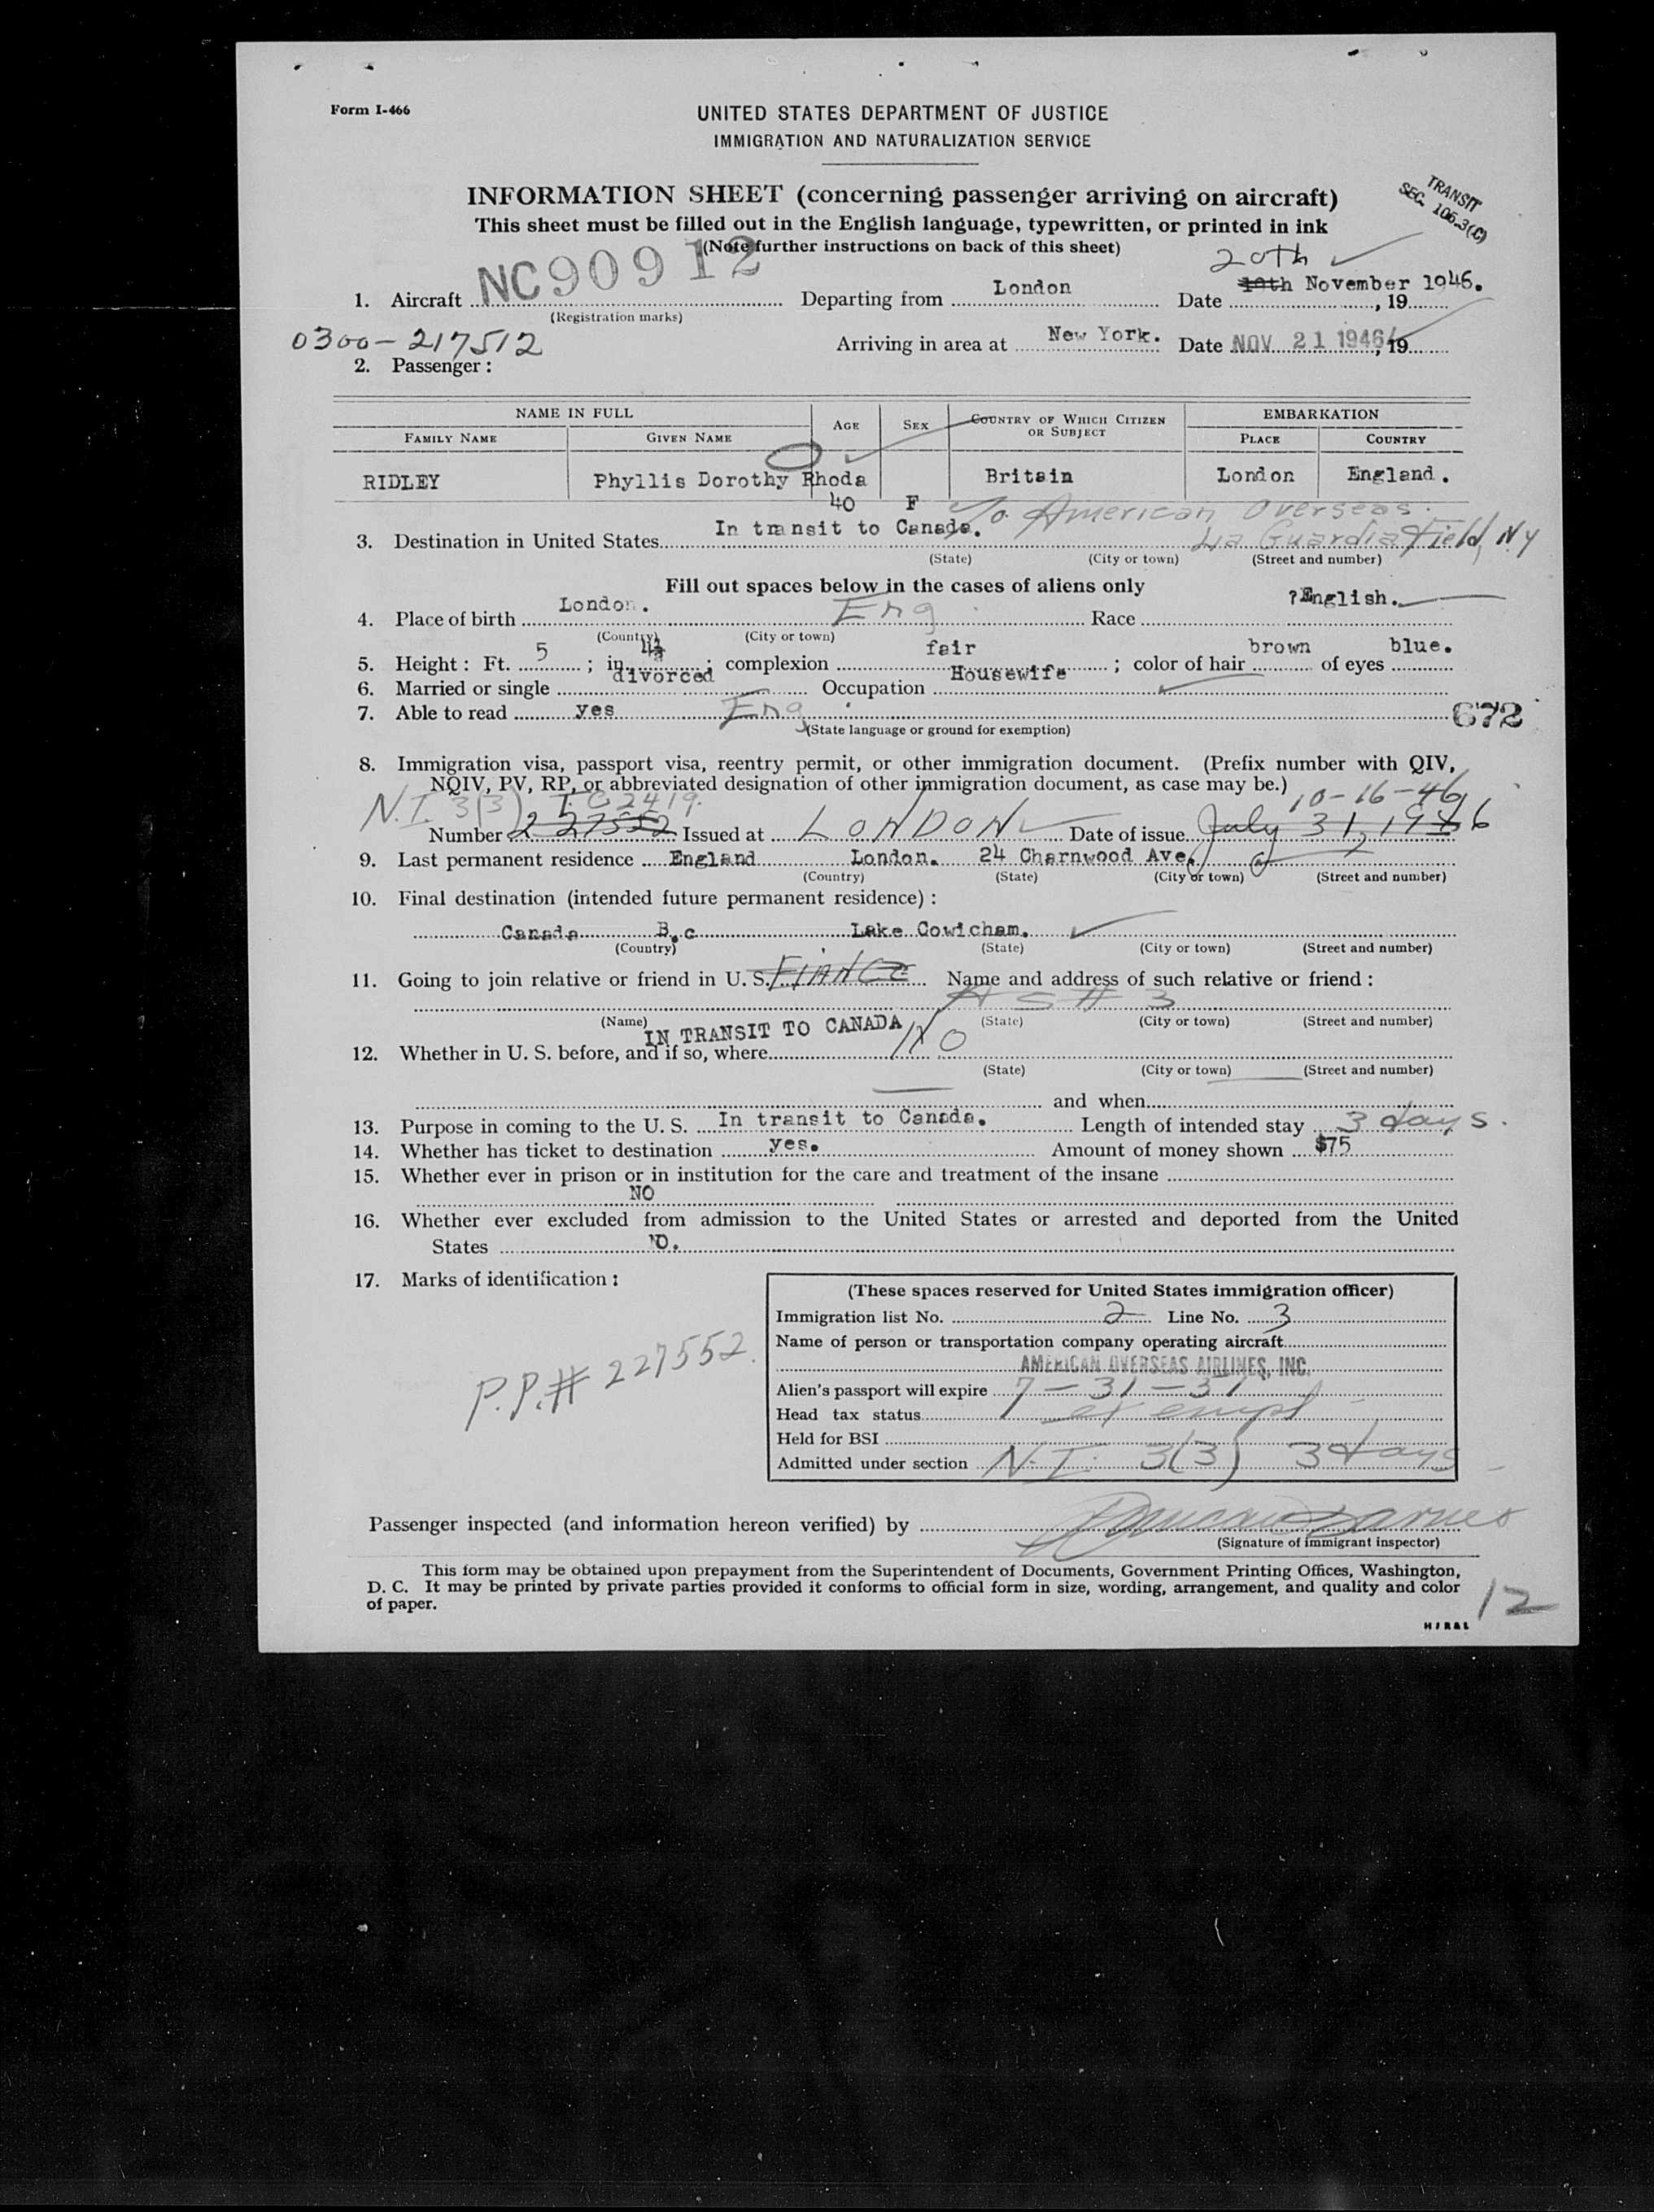 Form I-466
UNITED STATES DEPARTMENT OF JUSTICE
IMMIGRATION AND NATURALIZATION SERVICE
INFORMATION SHEET (concerning passenger arriving on aircraft)
TRANSIT
SEC. 106.3(C)
This sheet must be filled out in the English language, typewritten, or printed in ink
(Note further instructions on back of this sheet)
20th
1. Aircraft NC90912 Departing from London Date November 1946. , 19
(Registration marks)
0300-217512
Arriving in area at New York. Date NOV 21 1946, 19
2. Passenger:
NAME IN FULL AGE SEX COUNTRY OF WHICH CITIZEN OR SUBJECT EMBARKATION
FAMILY NAME GIVEN NAME PLACE COUNTRY
RIDLEY Phyllis Dorothy Rhoda Britain London England.
40 F
% American Overseas.
3. Destination in United States In transit to Canada. La Guardia Field, NY
(State) (City or town) (Street and number)
Fill out spaces below in the cases of aliens only
4. Place of birth London. Eng Race ?English.
(Country) (City or town)
5. Height: Ft. 5 ; in. ; complexion fair ; color of hair brown of eyes blue.
6. Married or single divorced Occupation Housewife
7. Able to read yes Eng
672
(State language or ground for exemption)
8. Immigration visa, passport visa, reentry permit, or other immigration document. (Prefix number with QIV,
NQIV, PV, RP, or abbreviated designation of other immigration document, as case may be.)
N.I. 3(3) T.C 2419. 10-16-46
Number 227552 Issued at LONDON Date of issue July 31, 1946
9. Last permanent residence England London. 24 Charnwood Ave.
(Country) (State) (City or town) (Street and number)
10. Final destination (intended future permanent residence):
Canada B.c Lake Cowicham.
(Country) (State) (City or town) (Street and number)
11. Going to join relative or friend in U. S. FIANCE Name and address of such relative or friend:
AS # 3
(Name) (State) (City or town) (Street and number)
IN TRANSIT TO CANADA
12. Whether in U. S. before, and if so, where NO
(State) (City or town) (Street and number)
and when
13. Purpose in coming to the U. S. In transit to Canada. Length of intended stay 3 days.
14. Whether has ticket to destination yes. Amount of money shown $75
15. Whether ever in prison or in institution for the care and treatment of the insane
NO
16. Whether ever excluded from admission to the United States or arrested and deported from the United
States NO.
17. Marks of identification:
P.P.# 227552.
(These spaces reserved for United States immigration officer)
Immigration list No. 2 Line No. 3
Name of person or transportation company operating aircraft
AMERICAN OVERSEAS AIRLINES, INC.
Alien's passport will expire 7-31-51
Head tax status exempt
Held for BSI
Admitted under section N.I. 3(3) 3 days
Passenger inspected (and information hereon verified) by
(Signature of immigrant inspector)
This form may be obtained upon prepayment from the Superintendent of Documents, Government Printing Offices, Washington,
D. C. It may be printed by private parties provided it conforms to official form in size, wording, arrangement, and quality and color
of paper.
12